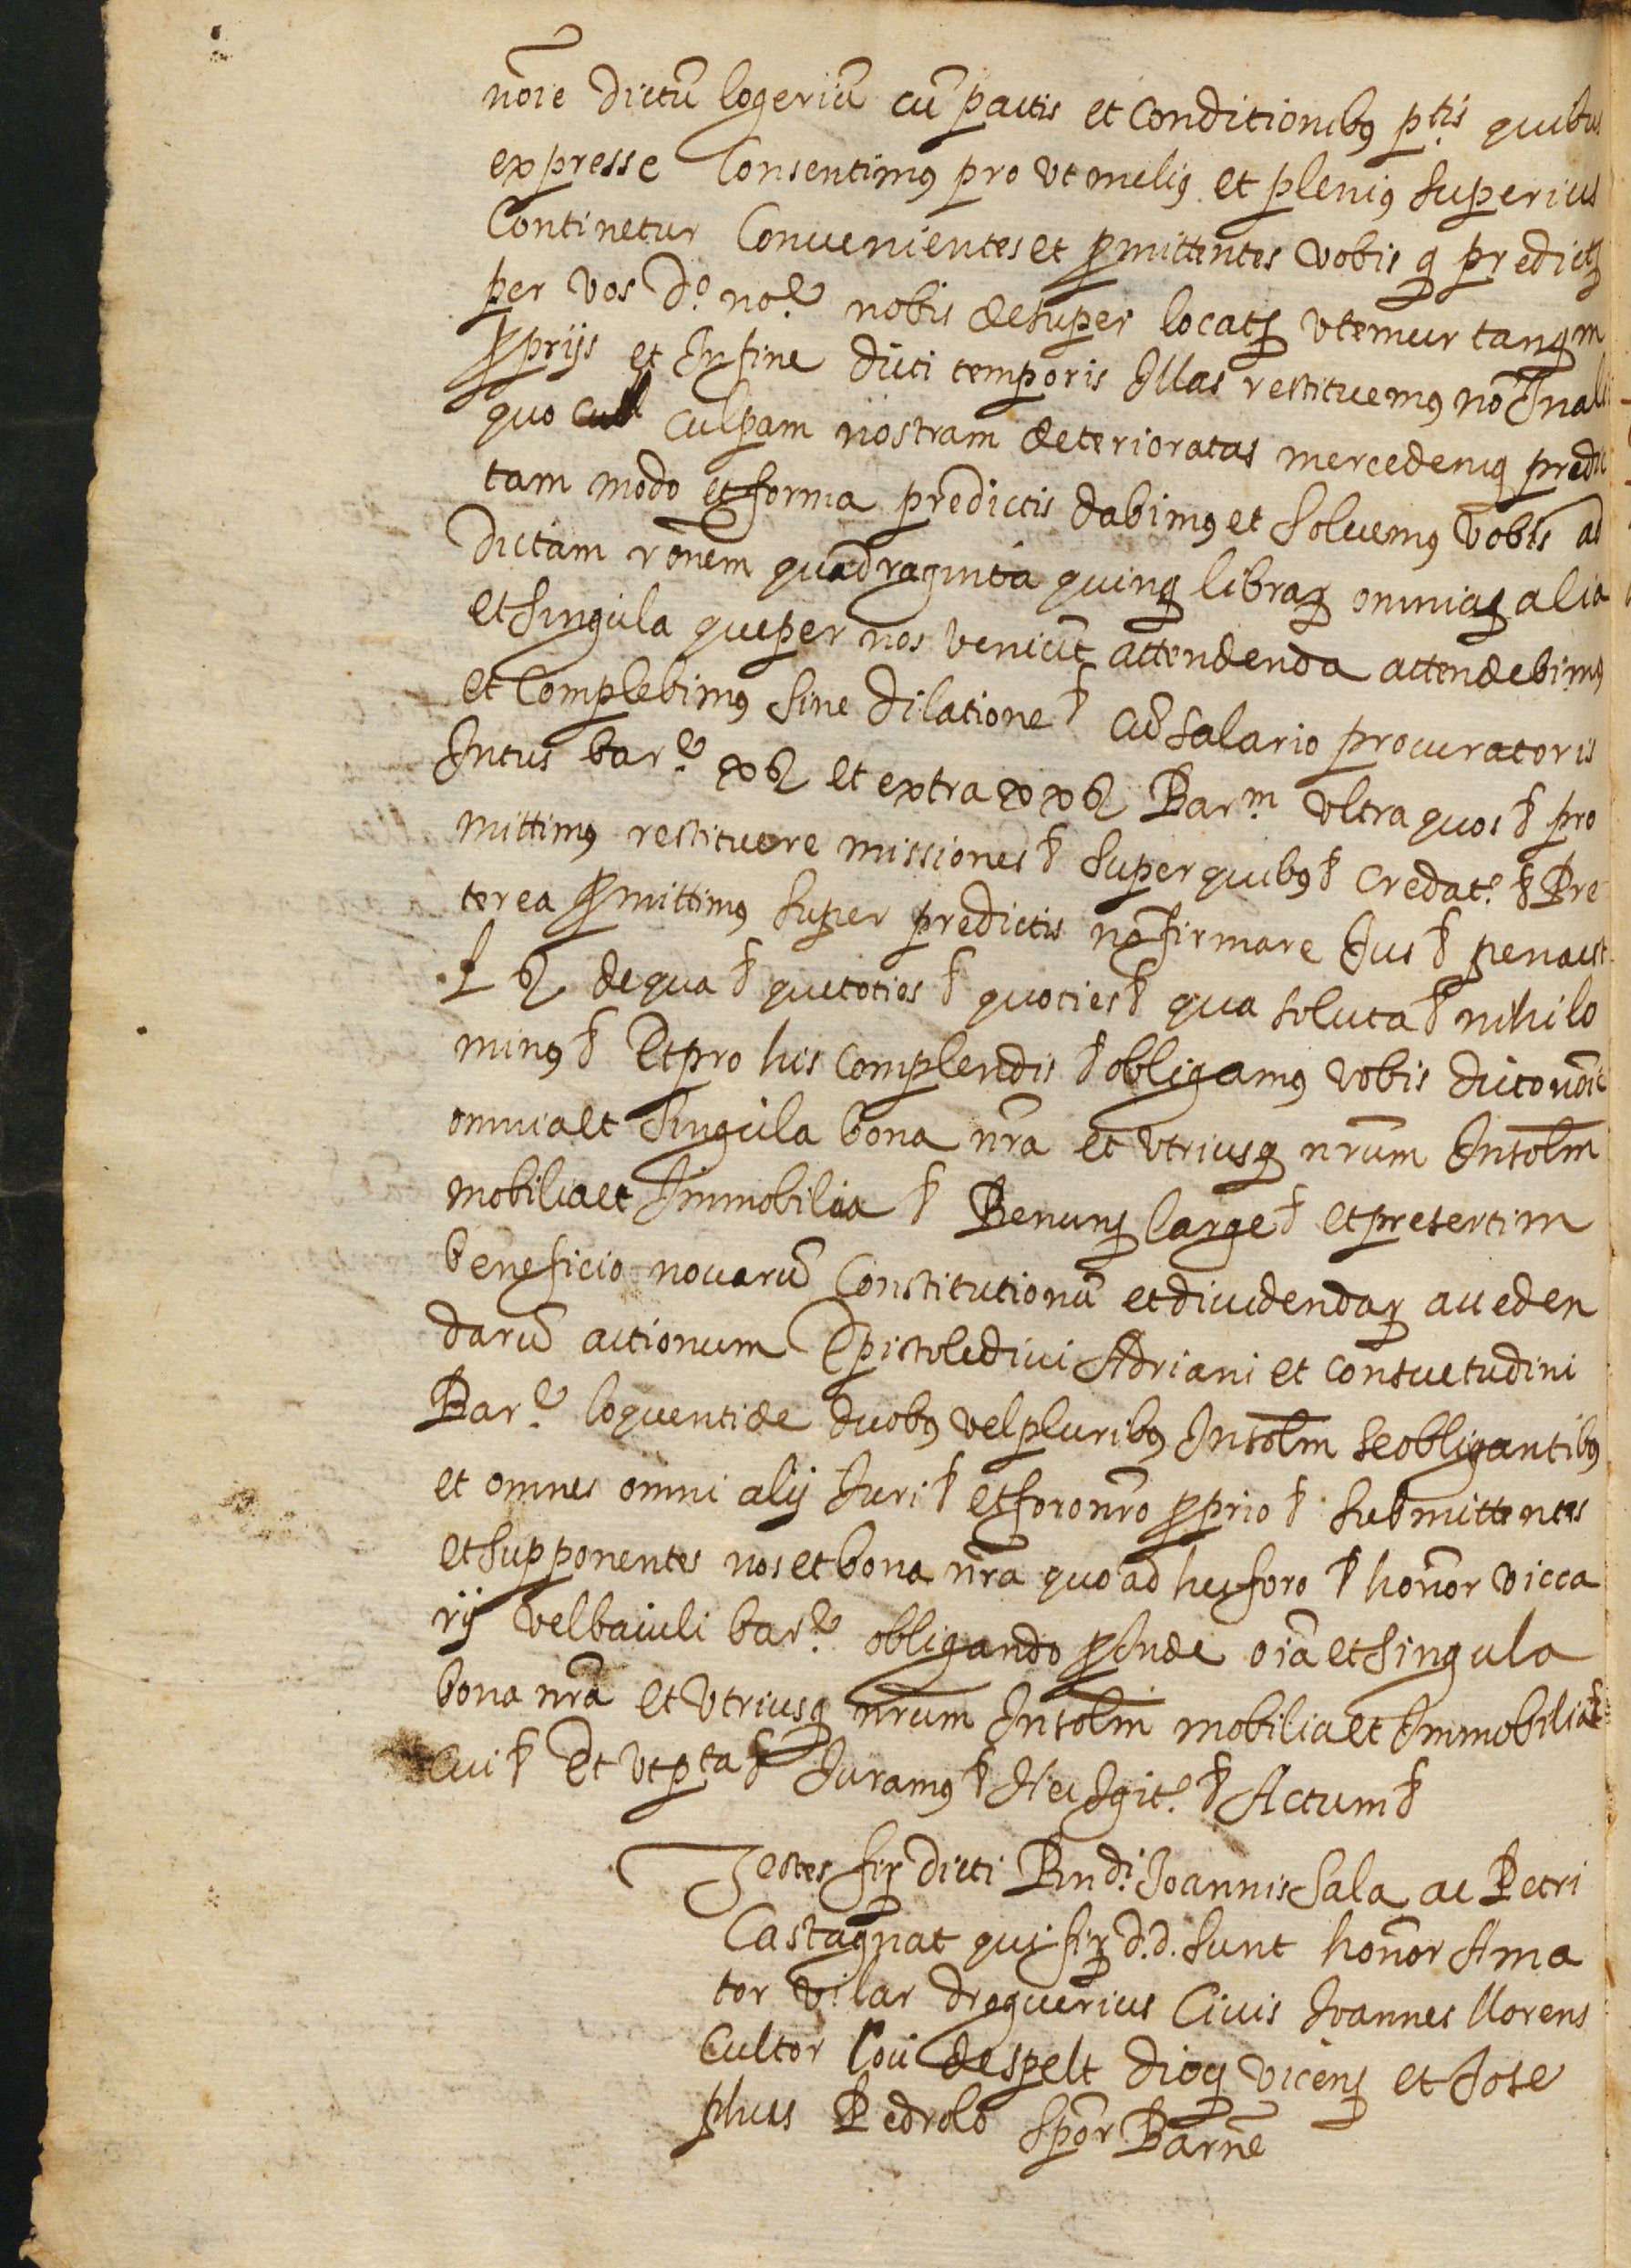 nõie dictũ logeriũ cũ pactis et conditionibꝯ p.tis quibus
expresse Consentimꝯ pro vt meliꝯ et pleniꝯ superius
Continetur Conuenientes et ꝓmittentes vobis q̨ predict
per vos d.º no.e nobis desuper locat vtemur tanq̨m
ꝓprijs et In fine dicti temporis Illas restituemꝯ nõ In ali
quo culpam nostram deterioratas mercedemq̨ predic
tam modo et forma predictis dabimꝯ et soluemꝯ vobis ad
dictam rõnem quadraginta quinq̨ libraꝝ omniaq̨ alia
et singula que per nos veniũt attendenda attendebimꝯ
et Complebimꝯ sine dilatione & cũ salario procuratoris
Intus bar.e xß et extra xxß Bar.m vltra quos & pro
mittimꝯ restituere missiones & super quibꝯ & credat.r & Pre
terea ꝓmittimꝯ super predictis nõ firmare Jus & pena est
ß de qua & que toties & quoties & qua soluta & nihilo
minꝯ & Et pro his complendis & obligamꝯ vobis dicto nõie
omnia et singula bona nr̃a et vtriusq̨ nr̃um Insolm̃
mobilia et Immobilia & Renunꝯ large & et presertim
beneficio nouarũ Constitutionũ et diuidendaꝝ ac ceden
darũ actionum Epistole diui Adriani et Consuetudini
Bar.e loquenti de duobꝯ vel pluribꝯ Insolm̃ se obligantibꝯ
et omnes omni alij Juri & et foro nr̃o ꝓprio & submittentes
et supponentes nos et bona nr̃a quo ad hec foro & honor̃ vicca
rij vel baiuli bar.e obligando ꝓ Inde oĩa et singula
bona nr̃a et vtriusq̨ nr̃um Insolm̃ mobilia et Immobilia &
Cui & Et vt p.ta & Juramꝯ & Hec Igit.r & Actum &
Testes fir̃ dicti Rndi. Joannis Sala ac Petri
Castagnat qui fir̃ d.d. sunt honor̃ Ama
tor vilar droguerius Ciuis Joannes llorens
Cultor loci de spelt dioq̨ vicenꝯ et Jose
phus Pedrolo sp̃or Bar̃ne